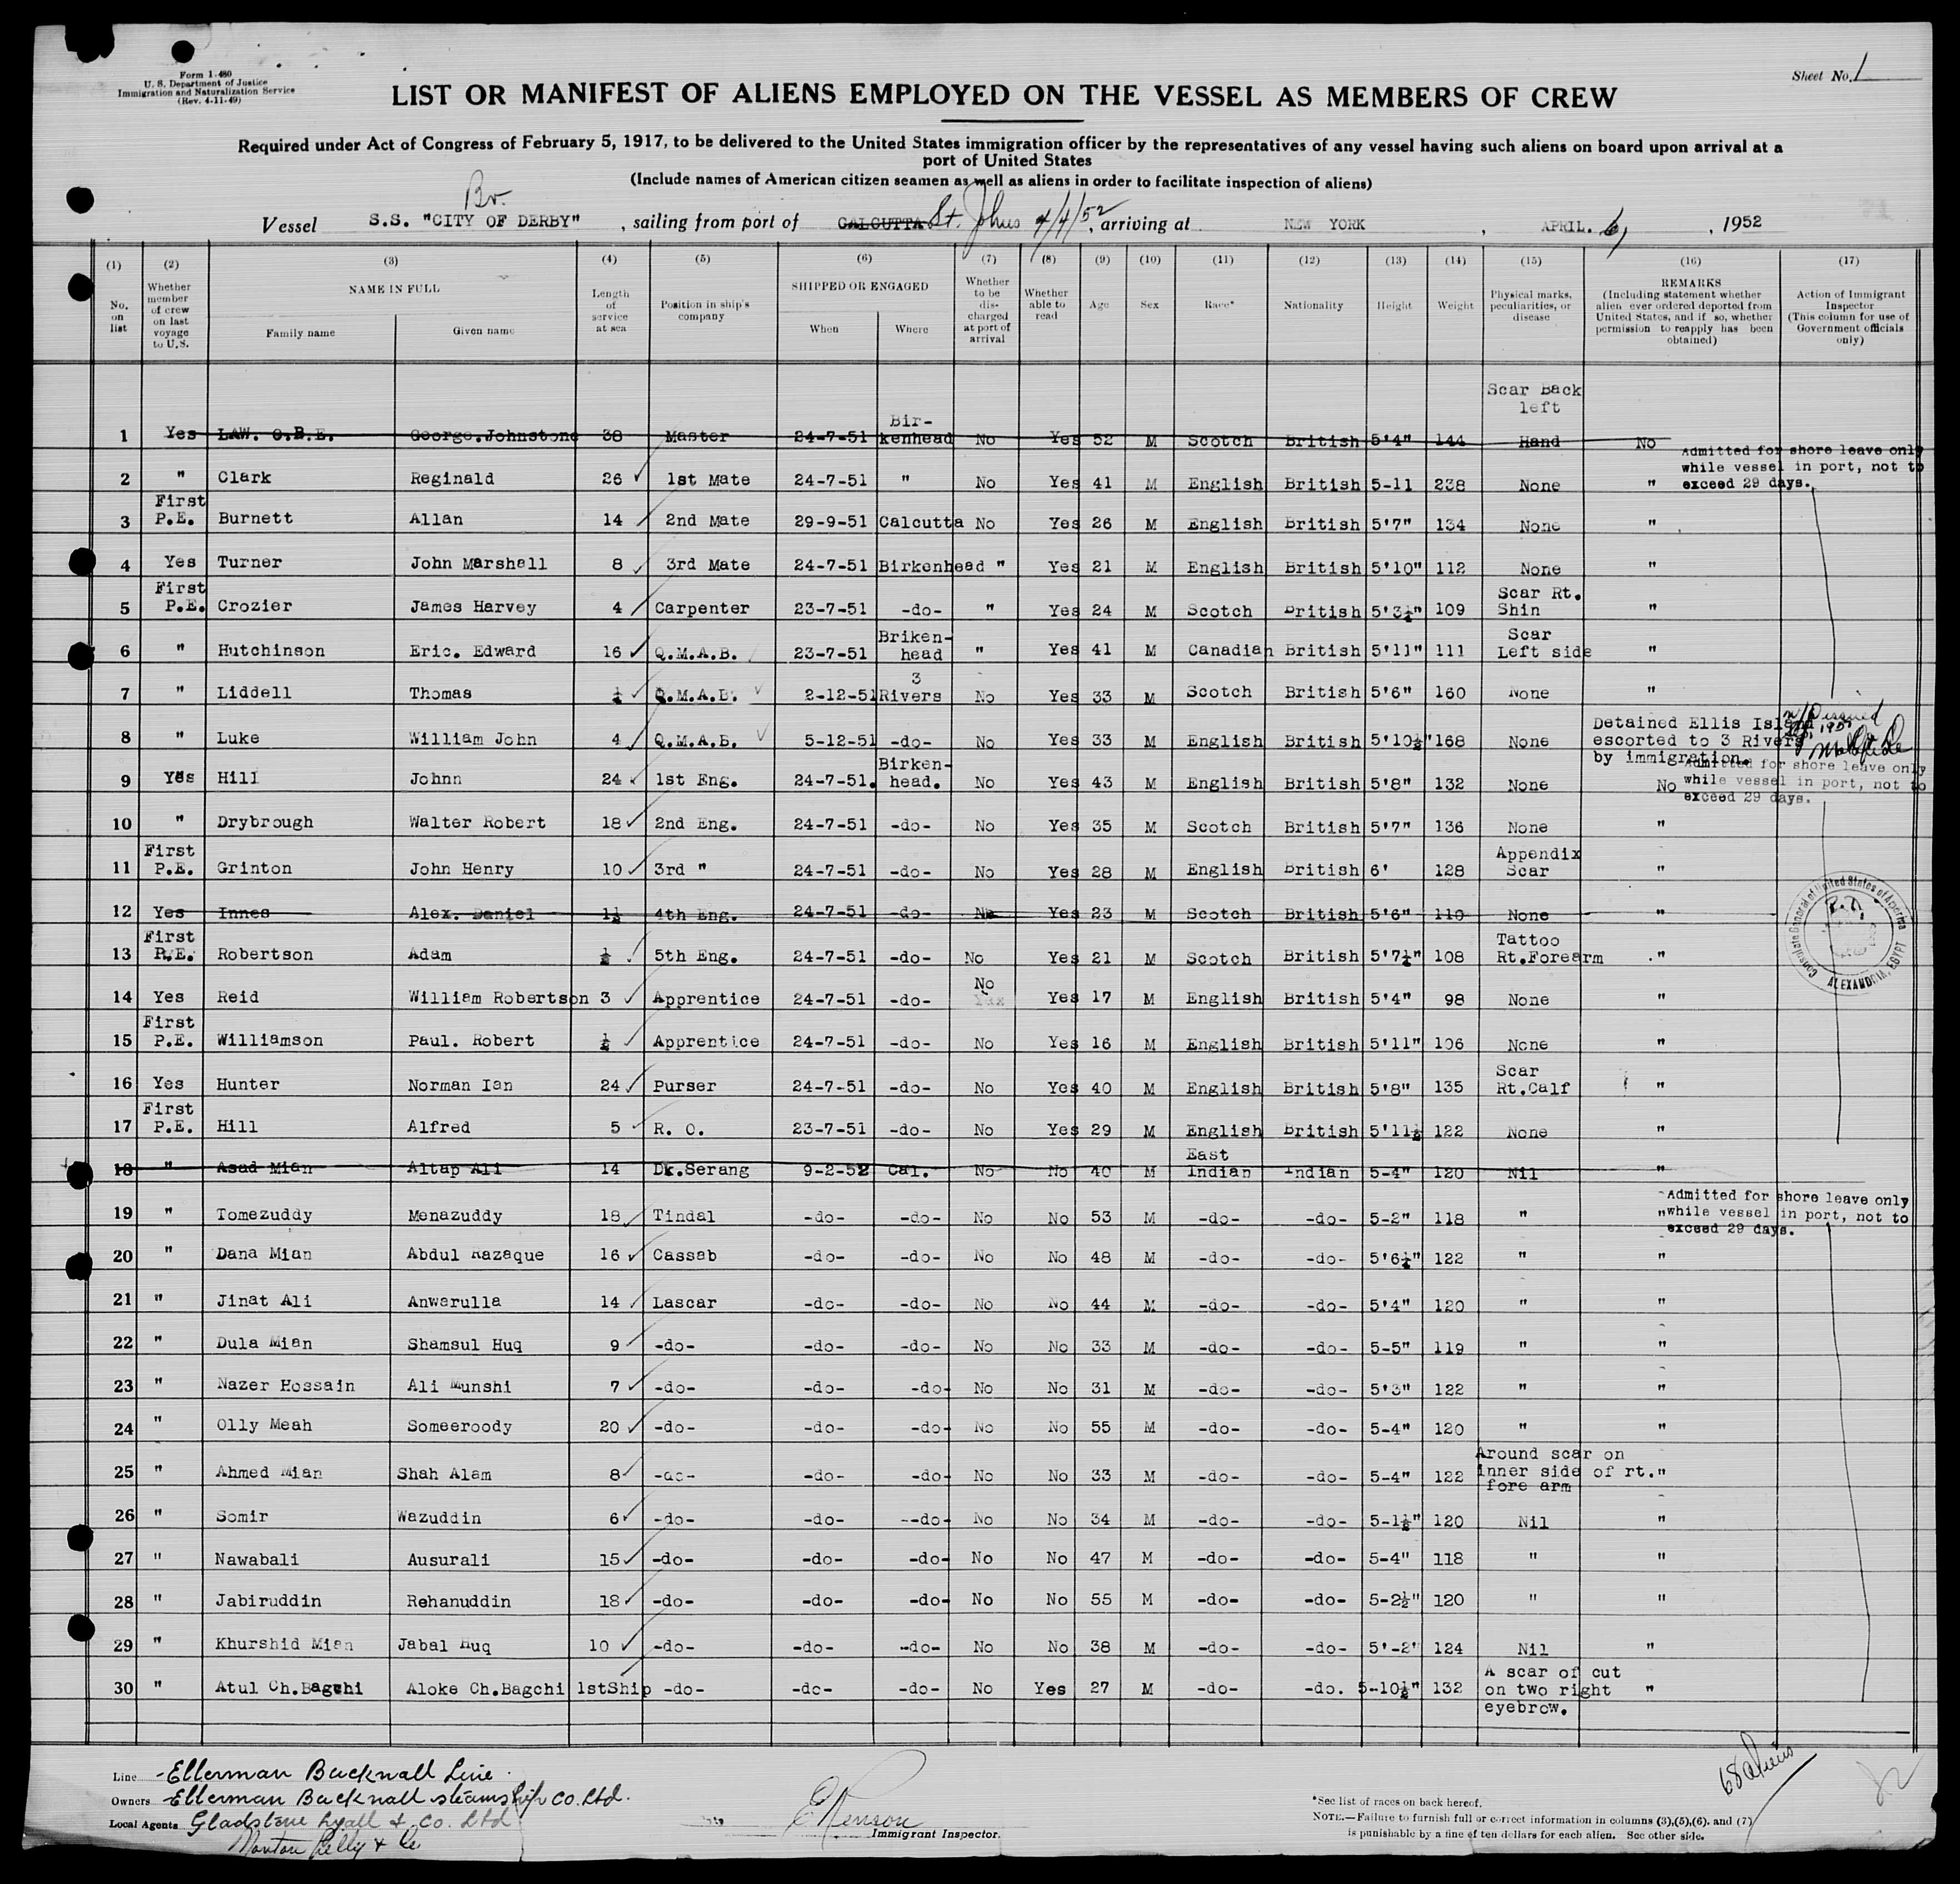 Form I-480
U. S. Department of Justice
Immigration and Naturalization Service
(Rev. 4-11-49)
Sheet No. 1
LIST OR MANIFEST OF ALIENS EMPLOYED ON THE VESSEL AS MEMBERS OF CREW
Required under Act of Congress of February 5, 1917, to be delivered to the United States immigration officer by the representatives of any vessel having such aliens on board upon arrival at a
port of United States
(Include names of American citizen seamen as well as aliens in order to facilitate inspection of aliens)
Br.
Vessel S.S. "CITY OF DERBY" , sailing from port of CALCUTTA St. Johns 4/4/52, arriving at NEW YORK , APRIL. 6, , 1952
(1) (2) (3) (4) (5) (6) (7) (8) (9) (10) (11) (12) (13) (14) (15) (16) (17)
No. on list
Whether member of crew on last voyage to U.S.
NAME IN FULL
Family name Given name
Length of service at sea
Position in ship's company
SHIPPED OR ENGAGED
When Where
Whether to be discharged at port of arrival
Whether able to read
Age
Sex
Race*
Nationality
Height
Weight
Physical marks, peculiarities, or disease
REMARKS
(Including statement whether alien ever ordered deported from United States, and if so, whether permission to reapply has been obtained)
Action of Immigrant Inspector
(This column for use of Government officials only)
1 Yes LAW. O.B.E. George.Johnstone 38 Master 24-7-51 Bir-kenhead No Yes 52 M Scotch British 5'4" 144 Scar Back left Hand No
Admitted for shore leave only
while vessel in port, not to
exceed 29 days.
2 " Clark Reginald 26 1st Mate 24-7-51 " No Yes 41 M English British 5-11 238 None "
3 First P.E. Burnett Allan 14 2nd Mate 29-9-51 Calcutta No Yes 26 M English British 5'7" 134 None "
4 Yes Turner John Marshall 8 3rd Mate 24-7-51 Birkenhead " Yes 21 M English British 5'10" 112 None "
5 First P.E. Crozier James Harvey 4 Carpenter 23-7-51 -do- " Yes 24 M Scotch British 5'3½" 109 Scar Rt. Shin "
6 " Hutchinson Eric. Edward 16 Q.M.A.B. 23-7-51 Briken-head " Yes 41 M Canadian British 5'11" 111 Scar Left side "
7 " Liddell Thomas ½ Q.M.A.B. 2-12-51 3 Rivers No Yes 33 M Scotch British 5'6" 160 None "
8 " Luke William John 4 Q.M.A.B. 5-12-51 -do- No Yes 33 M English British 5'10½" 168 None Detained Ellis Island escorted to 3 Rivers by immigration.
9 Yes Hill Johnn 24 1st Eng. 24-7-51. Birken-head. No Yes 43 M English British 5'8" 132 None No
Admitted for shore leave only
while vessel in port, not to
exceed 29 days.
10 " Drybrough Walter Robert 18 2nd Eng. 24-7-51 -do- No Yes 35 M Scotch British 5'7" 136 None "
11 First P.E. Grinton John Henry 10 3rd " 24-7-51 -do- No Yes 28 M English British 6' 128 Appendix Scar "
12 Yes Innes Alex. Daniel 1½ 4th Eng. 24-7-51 -do- No Yes 23 M Scotch British 5'6" 110 None "
13 First P.E. Robertson Adam ½ 5th Eng. 24-7-51 -do- No Yes 21 M Scotch British 5'7½" 108 Tattoo Rt.Forearm "
14 Yes Reid William Robertson 3 Apprentice 24-7-51 -do- No Yes 17 M English British 5'4" 98 None "
15 First P.E. Williamson Paul. Robert ½ Apprentice 24-7-51 -do- No Yes 16 M English British 5'11" 106 None "
16 Yes Hunter Norman Ian 24 Purser 24-7-51 -do- No Yes 40 M English British 5'8" 135 Scar Rt.Calf "
17 First P.E. Hill Alfred 5 R. O. 23-7-51 -do- No Yes 29 M English British 5'11½ 122 None "
18 " Asad Mian Altap Ali 14 Dk.Serang 9-2-52 Cal. No No 40 M East Indian Indian 5-4" 120 Nil "
19 " Tomezuddy Menazuddy 18 Tindal -do- -do- No No 53 M -do- -do- 5-2" 118 " "
Admitted for shore leave only
while vessel in port, not to
exceed 29 days.
20 " Dana Mian Abdul Razaque 16 Cassab -do- -do- No No 48 M -do- -do- 5'6½" 122 " "
21 " Jinat Ali Anwarulla 14 Lascar -do- -do- No No 44 M -do- -do- 5'4" 120 " "
22 " Dula Mian Shamsul Huq 9 -do- -do- -do- No No 33 M -do- -do- 5-5" 119 " "
23 " Nazer Hossain Ali Munshi 7 -do- -do- -do- No No 31 M -do- -do- 5'3" 122 " "
24 " Olly Meah Someeroody 20 -do- -do- -do- No No 55 M -do- -do- 5-4" 120 " "
25 " Ahmed Mian Shah Alam 8 -do- -do- -do- No No 33 M -do- -do- 5-4" 122 Around scar on inner side of rt. fore arm "
26 " Somir Wazuddin 6 -do- -do- --do- No No 34 M -do- -do- 5-1½" 120 Nil "
27 " Nawabali Ausurali 15 -do- -do- -do- No No 47 M -do- -do- 5-4" 118 " "
28 " Jabiruddin Rehanuddin 18 -do- -do- -do- No No 55 M -do- -do- 5-2½" 120 " "
29 " Khurshid Mian Jabal Huq 10 -do- -do- -do- No No 38 M -do- -do- 5'-2" 124 Nil "
30 " Atul Ch.Bagchi Aloke Ch.Bagchi 1stShip -do- -do- -do- No Yes 27 M -do- -do. 5-10½" 132 A scar of cut on two right eyebrow. "
Consulate General of United States of America
ALEXANDRIA, EGYPT
68 Aliens
Line Ellerman Bucknall Line
Owners Ellerman Bucknall steamship co. Ltd.
Local Agents Gladstone Lyall & Co. Ltd
Norton Lilly & Co
Immigrant Inspector.
*See list of races on back hereof.
NOTE.—Failure to furnish full or correct information in columns (3),(5),(6). and (7)
is punishable by a fine of ten dollars for each alien. See other side.